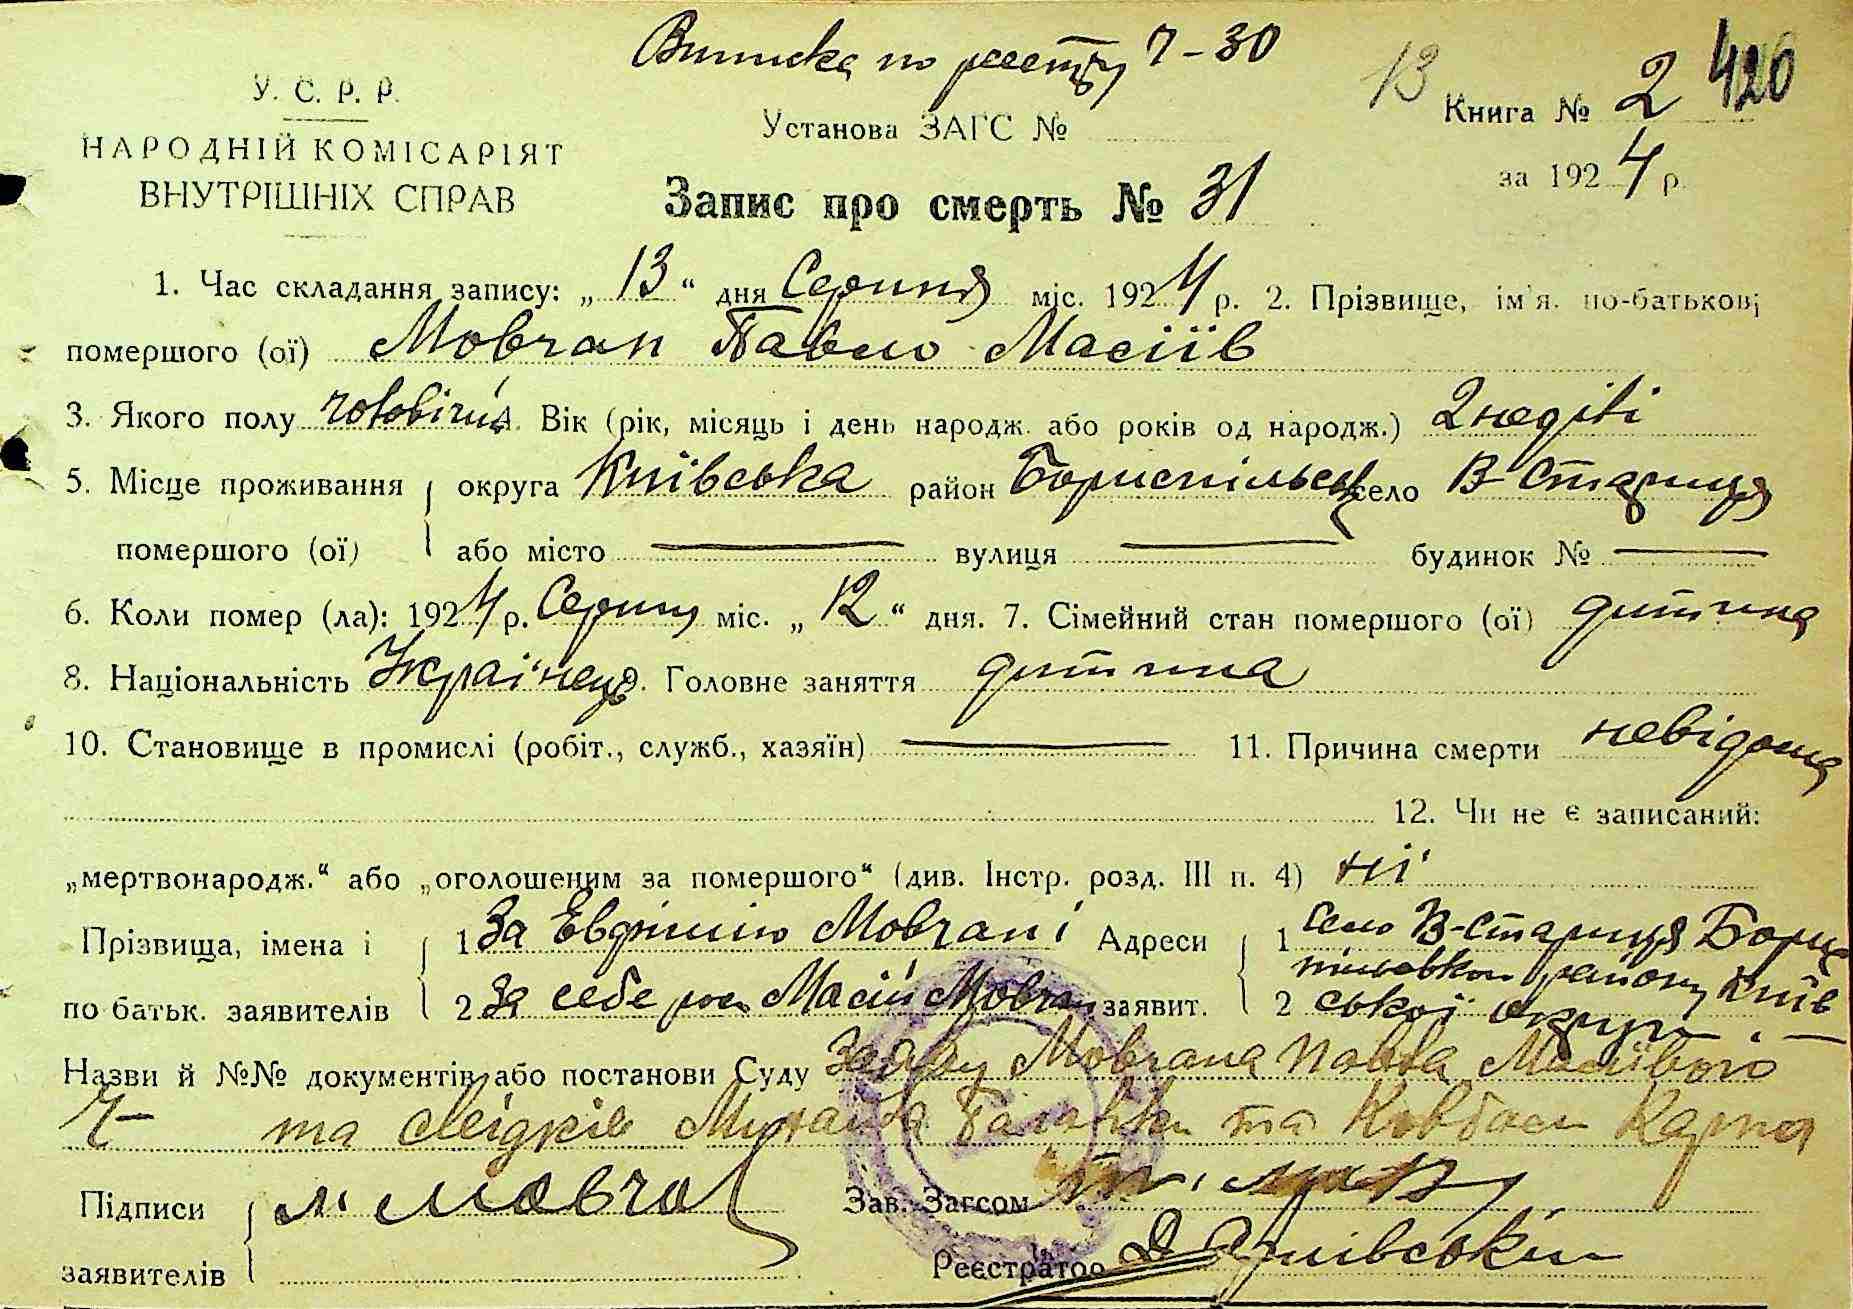 Виписка по реєстру 7-30
13
420
У. С. Р. Р.
НАРОДНІЙ КОМІСАРІЯТ
ВНУТРІШНІХ СПРАВ
Установа ЗАГС №
Книга № 2
за 1924 р.
Запис про смерть № 31
1. Час складання запису: „13“ дня Серпня міс. 1924 р. 2. Прізвище, ім'я. по-батькові
помершого (ої) Мовчан Павло Масіїв
3. Якого полу чоловічия. Вік (рік, місяць і день народж. або років од народж.) 2 неділі
5. Місце проживання округа Київська район Бориспільськ село В-Стариця
помершого (ої) або місто — вулиця — будинок № —
6. Коли помер (ла): 1924 р. Серпня міс. „12“ дня. 7. Сімейний стан помершого (ої) дитина
8. Національність Українець. Головне заняття дитина
10. Становище в промислі (робіт., служб., хазяїн) — 11. Причина смерти невідома
12. Чи не є записаний:
„мертвонародж.“ або „оголошеним за помершого“ (див. Інстр. розд. III п. 4) ні
Прізвища, імена і 1 За Мовчан і Адреси 1 село В-Стариця Борис
по батьк. заявителів 2 За себе Масій Мовчан заявит. 2 пільського району Київ
ської округи
Назви й №№ документів або постанови Суду Мовчана Павла Масійового
та свідків та Ковбаси Карпа
Підписи М Мовчан Зав. Загсом
заявителів Реєстратор